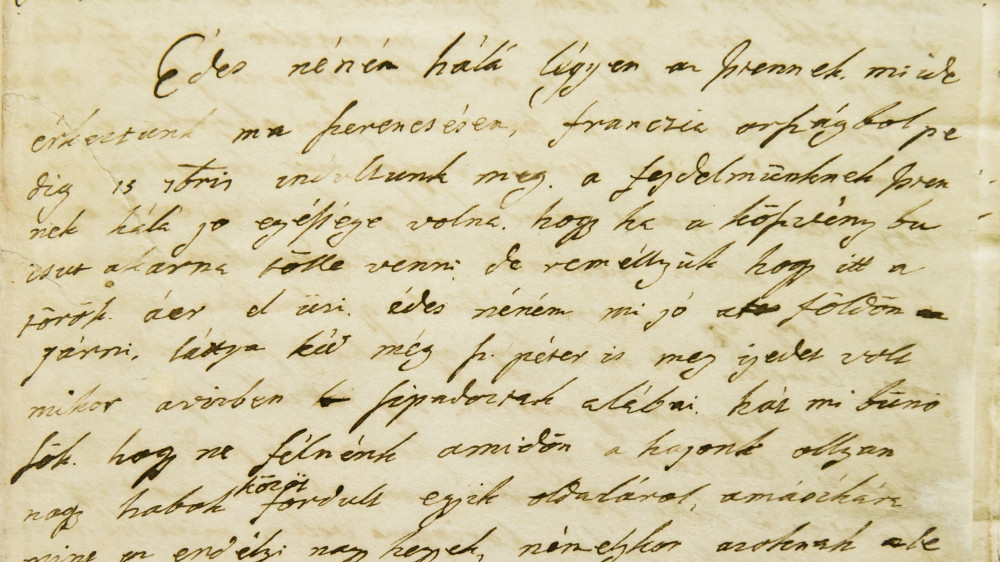 Édes néném hálá légyen az Istennek. mi ide
érkeztünk ma szerencsésen, francziaországbol pe
dig 15 7bris indultunk meg. a fejdelmünknek Isten
nek hála jo egésſége volna. hogy ha a köszvény bu
csut akarna tölle venni. de reméllyük hogy itt a
török. áer el üzi. édes néném mi jó a földön
járni, láttya kéd még sz. péter is meg ijedet volt
mikor a vizben sipadoztak a lábai. hát mi bünö
sök. hogy ne félnénk amidön a hajonk ollyan
nagy habok között fordult egyik oldaláról, a másikára
mint az erdélyi nagy hegyek, némelykor azoknak a te